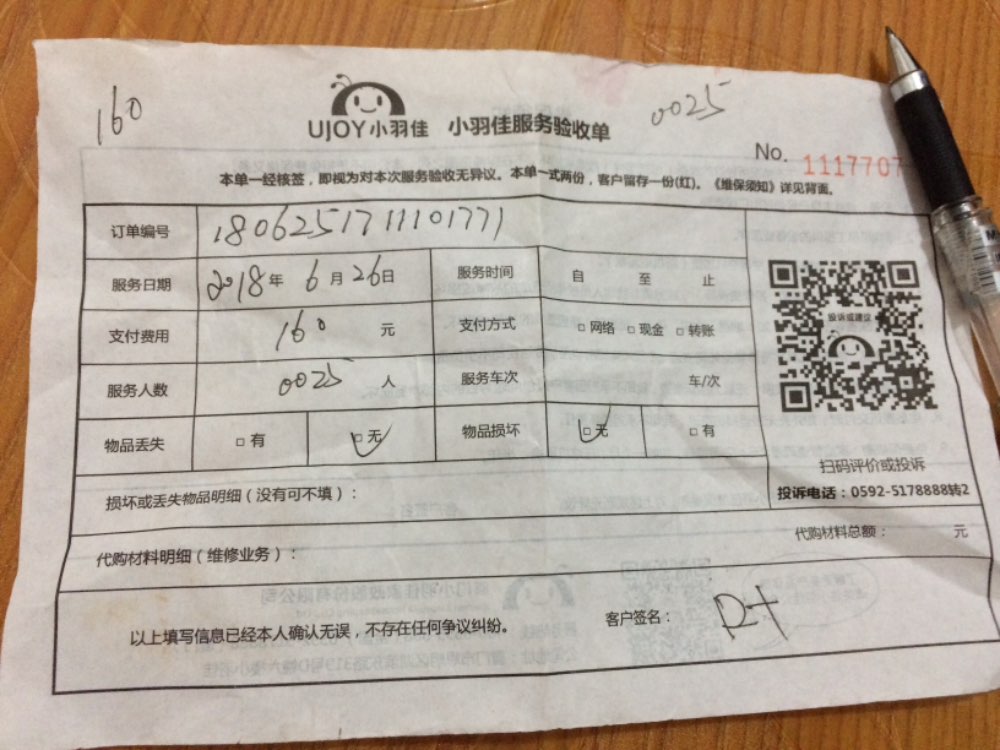 160
0025
UJOY小羽佳 小羽佳服务验收单
No. 1117707
本单一经核签，即视为对本次服务验收无异议。本单一式两份，客户留存一份(红)。《维保须知》详见背面。
订单编号 1806251711101771
服务日期 2018年 6月26日 服务时间 自 至 止
支付费用 160 元 支付方式 □网络 □现金 □转账
投诉或建议
服务人数 0025 人 服务车次 车/次
物品丢失 □有 □无 物品损坏 □无 □有
扫码评价或投诉
投诉电话：0592-5178888转2
损坏或丢失物品明细（没有可不填）：
代购材料明细（维修业务）： 代购材料总额： 元
以上填写信息已经本人确认无误，不存在任何争议纠纷。 客户签名：